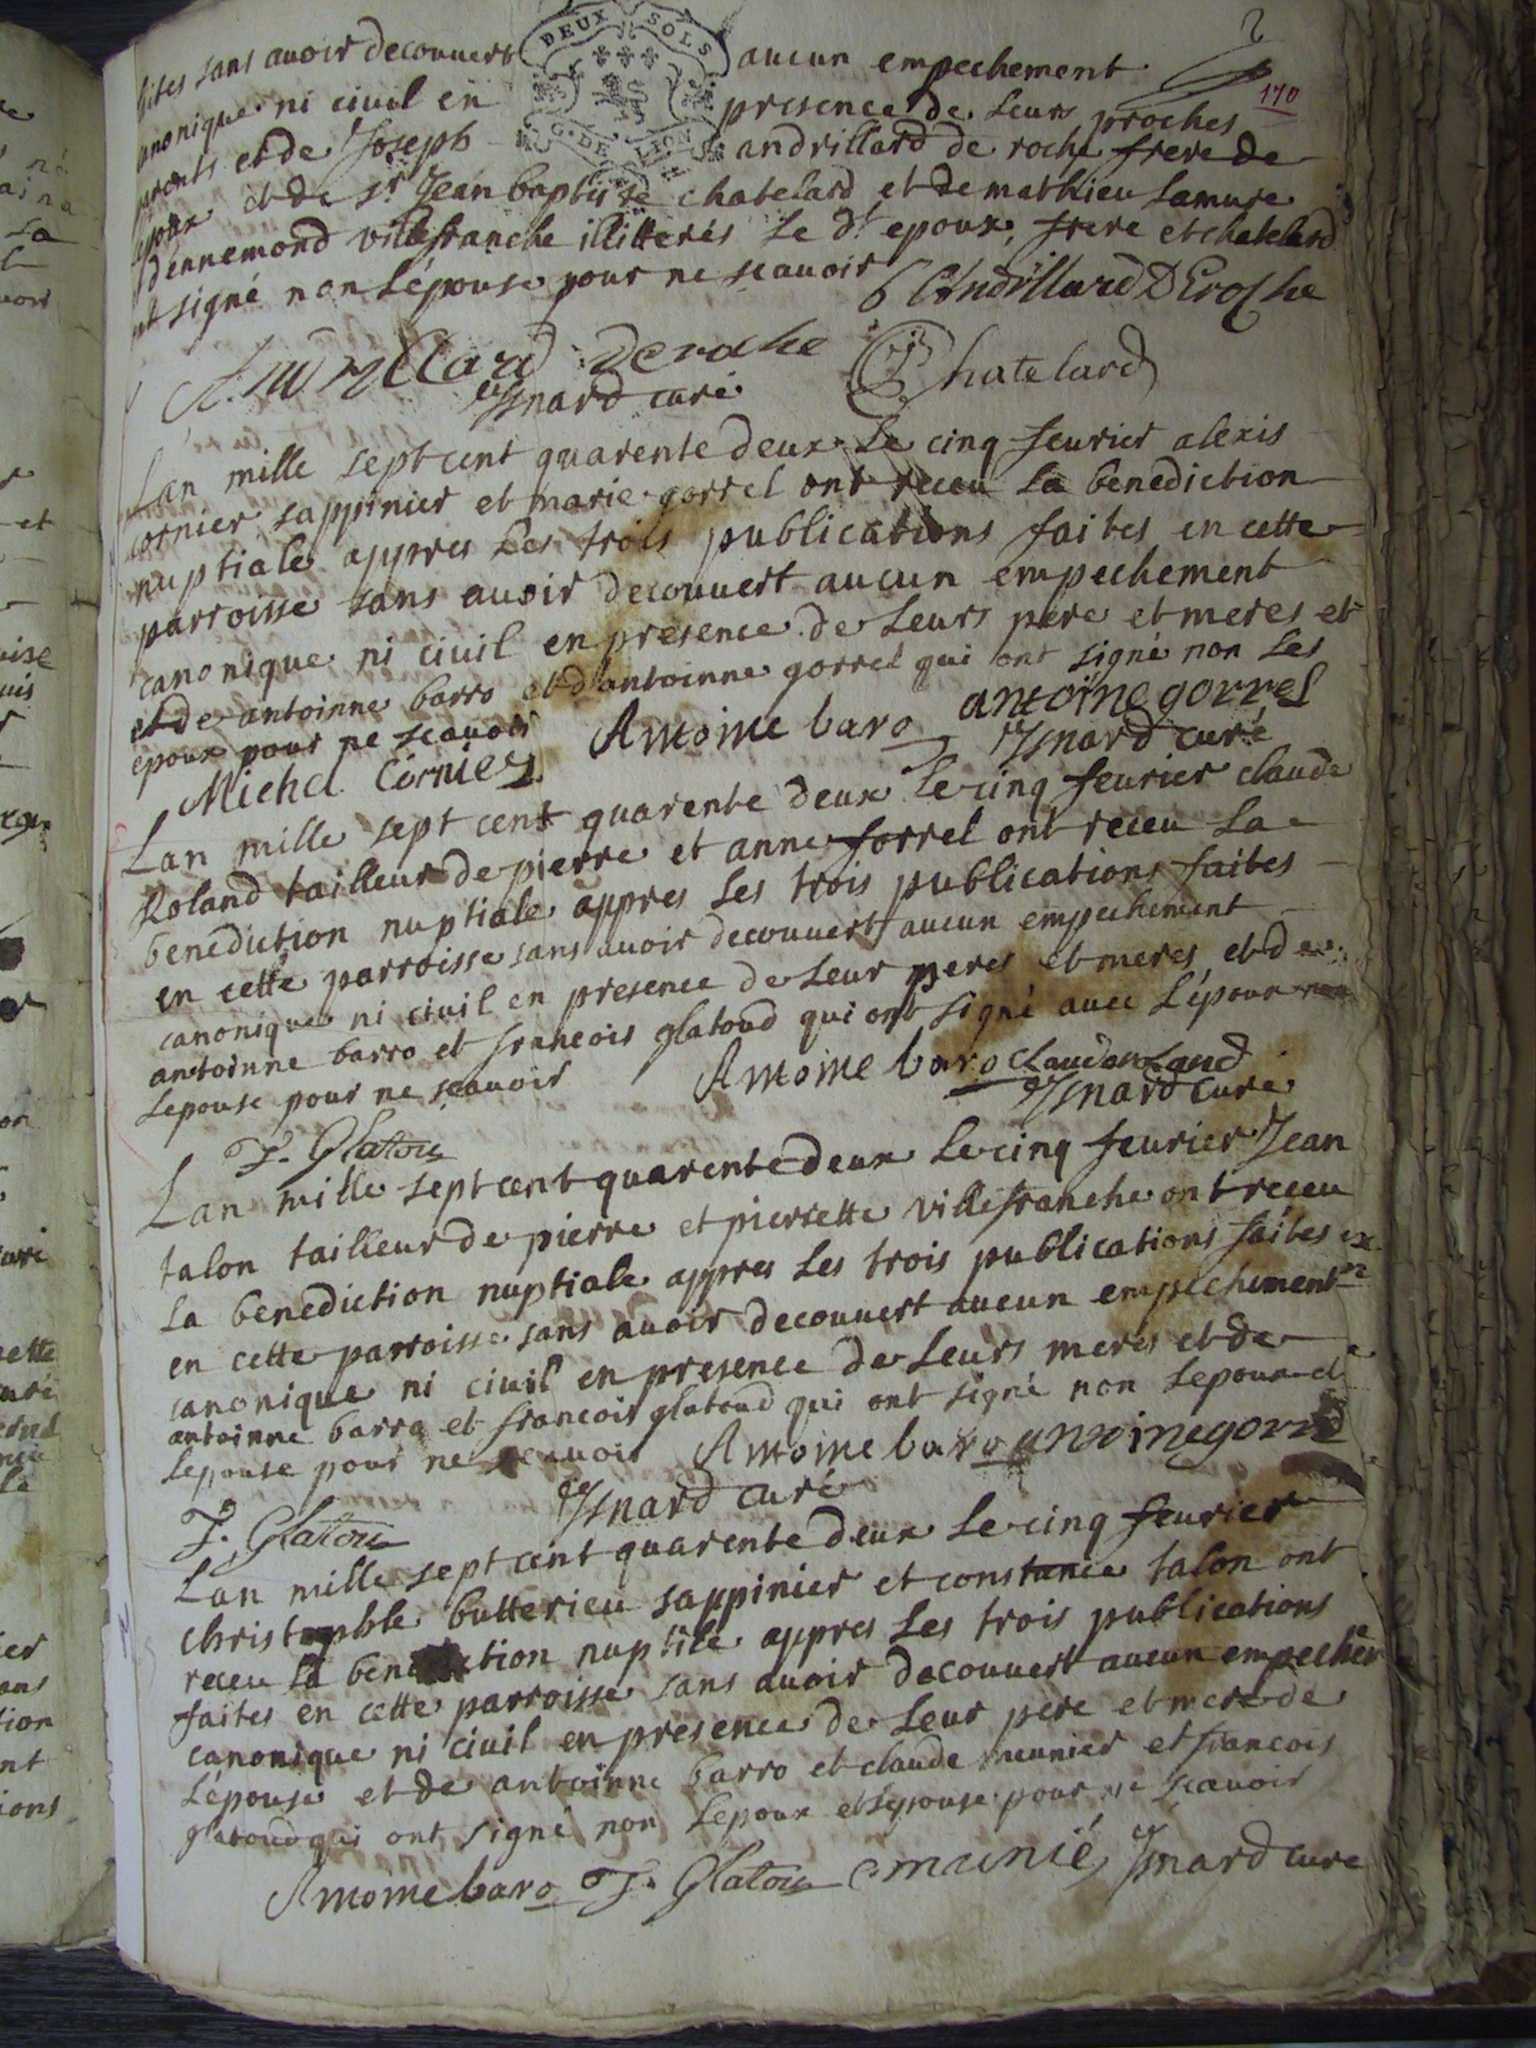 faites sans avoir decouvert DEUX SOLS aucun empechement
canonique ni civil en presence de Leurs proches 170
parents et de Joseph G. DE LION andrillard de roche frere de
Lepoux et de Sr Jean baptiste chatelard et de mathieu Lamure
dennemond villefranche illitterés Le dt epoux, frere et chatelard
ont signé non Lépouse pour ne scavoir C Andrillard DEroche
Andrillard Deroche Chatelard
Isnard curé
Lan mille sept cent quarente deux Le cinq feurier alexis
cornier sappinier et marie gorrel ont receu La benediction
nuptiale appres Les trois publications faites en cette
parroisse sans avoir decouvert aucun empechement
canonique ni civil en presence de Leurs pere et meres et
et de antoinne barro et d'antoinne gorrel qui ont signé non Les
epoux pour ne scavoir Antoine baro antoine gorrel
Michel Cornier Isnard curé
Lan mille sept cent quarente deux Le cinq feurier claude
Roland tailleur de pierre et anne forrel ont receu La
benediction nuptiale appres Les trois publications faites
en cette parroisse sans avoir decouvert aucun empechement
canonique ni civil en presence de Leur peres et meres et de
antoinne barro et francois glatoud qui ont signé avec L'époux non
Lepouse pour ne scavoir Antoine baro Claude Roland
Isnard Curé
F. Glatou
Lan mille sept cent quarente deux Le cinq feurier Jean
talon tailleur de pierre et pierrette villefranche ont receu
La benediction nuptiale appres Les trois publications faites
en cette parroisse sans avoir decouvert aucun empechement
canonique ni civil en presence de Leurs meres et de
antoinne barro et francois glatoud qui ont signé non Lepoux et
Lepouse pour ne scavoir Antoine baro antoine gorrel
F. Glatou Isnard curé
Lan mille sept cent quarente deux Le cinq feurier
christophle butterieu sappinier et constance talon ont
receu La benediction nuptile appres Les trois publications
faites en cette parroisse sans avoir decouvert aucun empecher
canonique ni civil en presence de Leur pere et mere de
Lépouse et de antoinne barro et claude meunier et francois
glatoud qui ont signé non Lepoux et Lépouse pour ne scavoir
Antoine baro F. Glatou C munié Isnard Curé